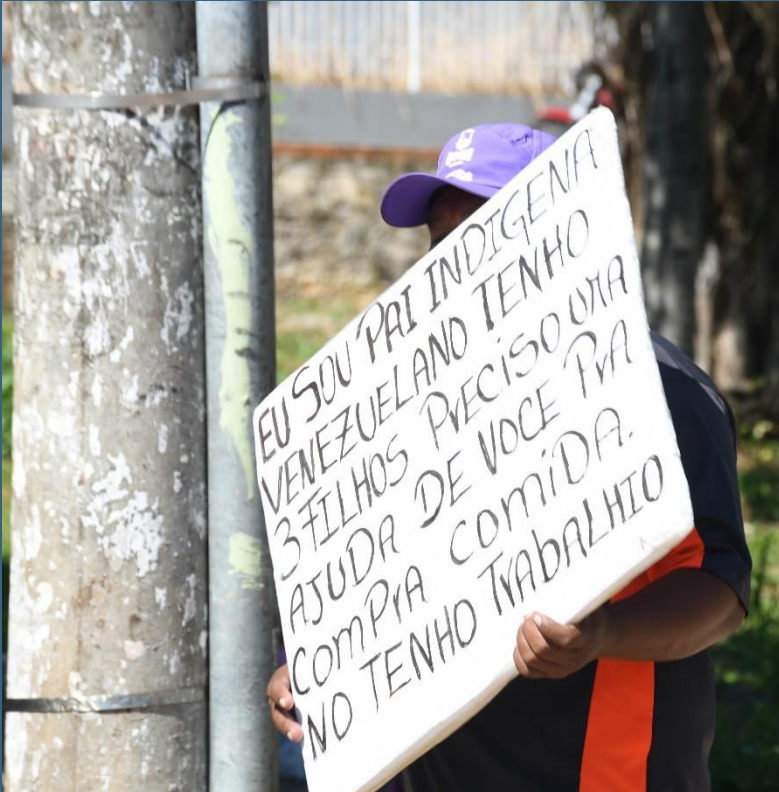 EU SOU PAI INDIGENA
VENEZUELANO TENHO
3 FILHOS PRECISO UMA
AJUDA DE VOCE PRA
COMPRA COMIDA.
NO TENHO TRABALHIO